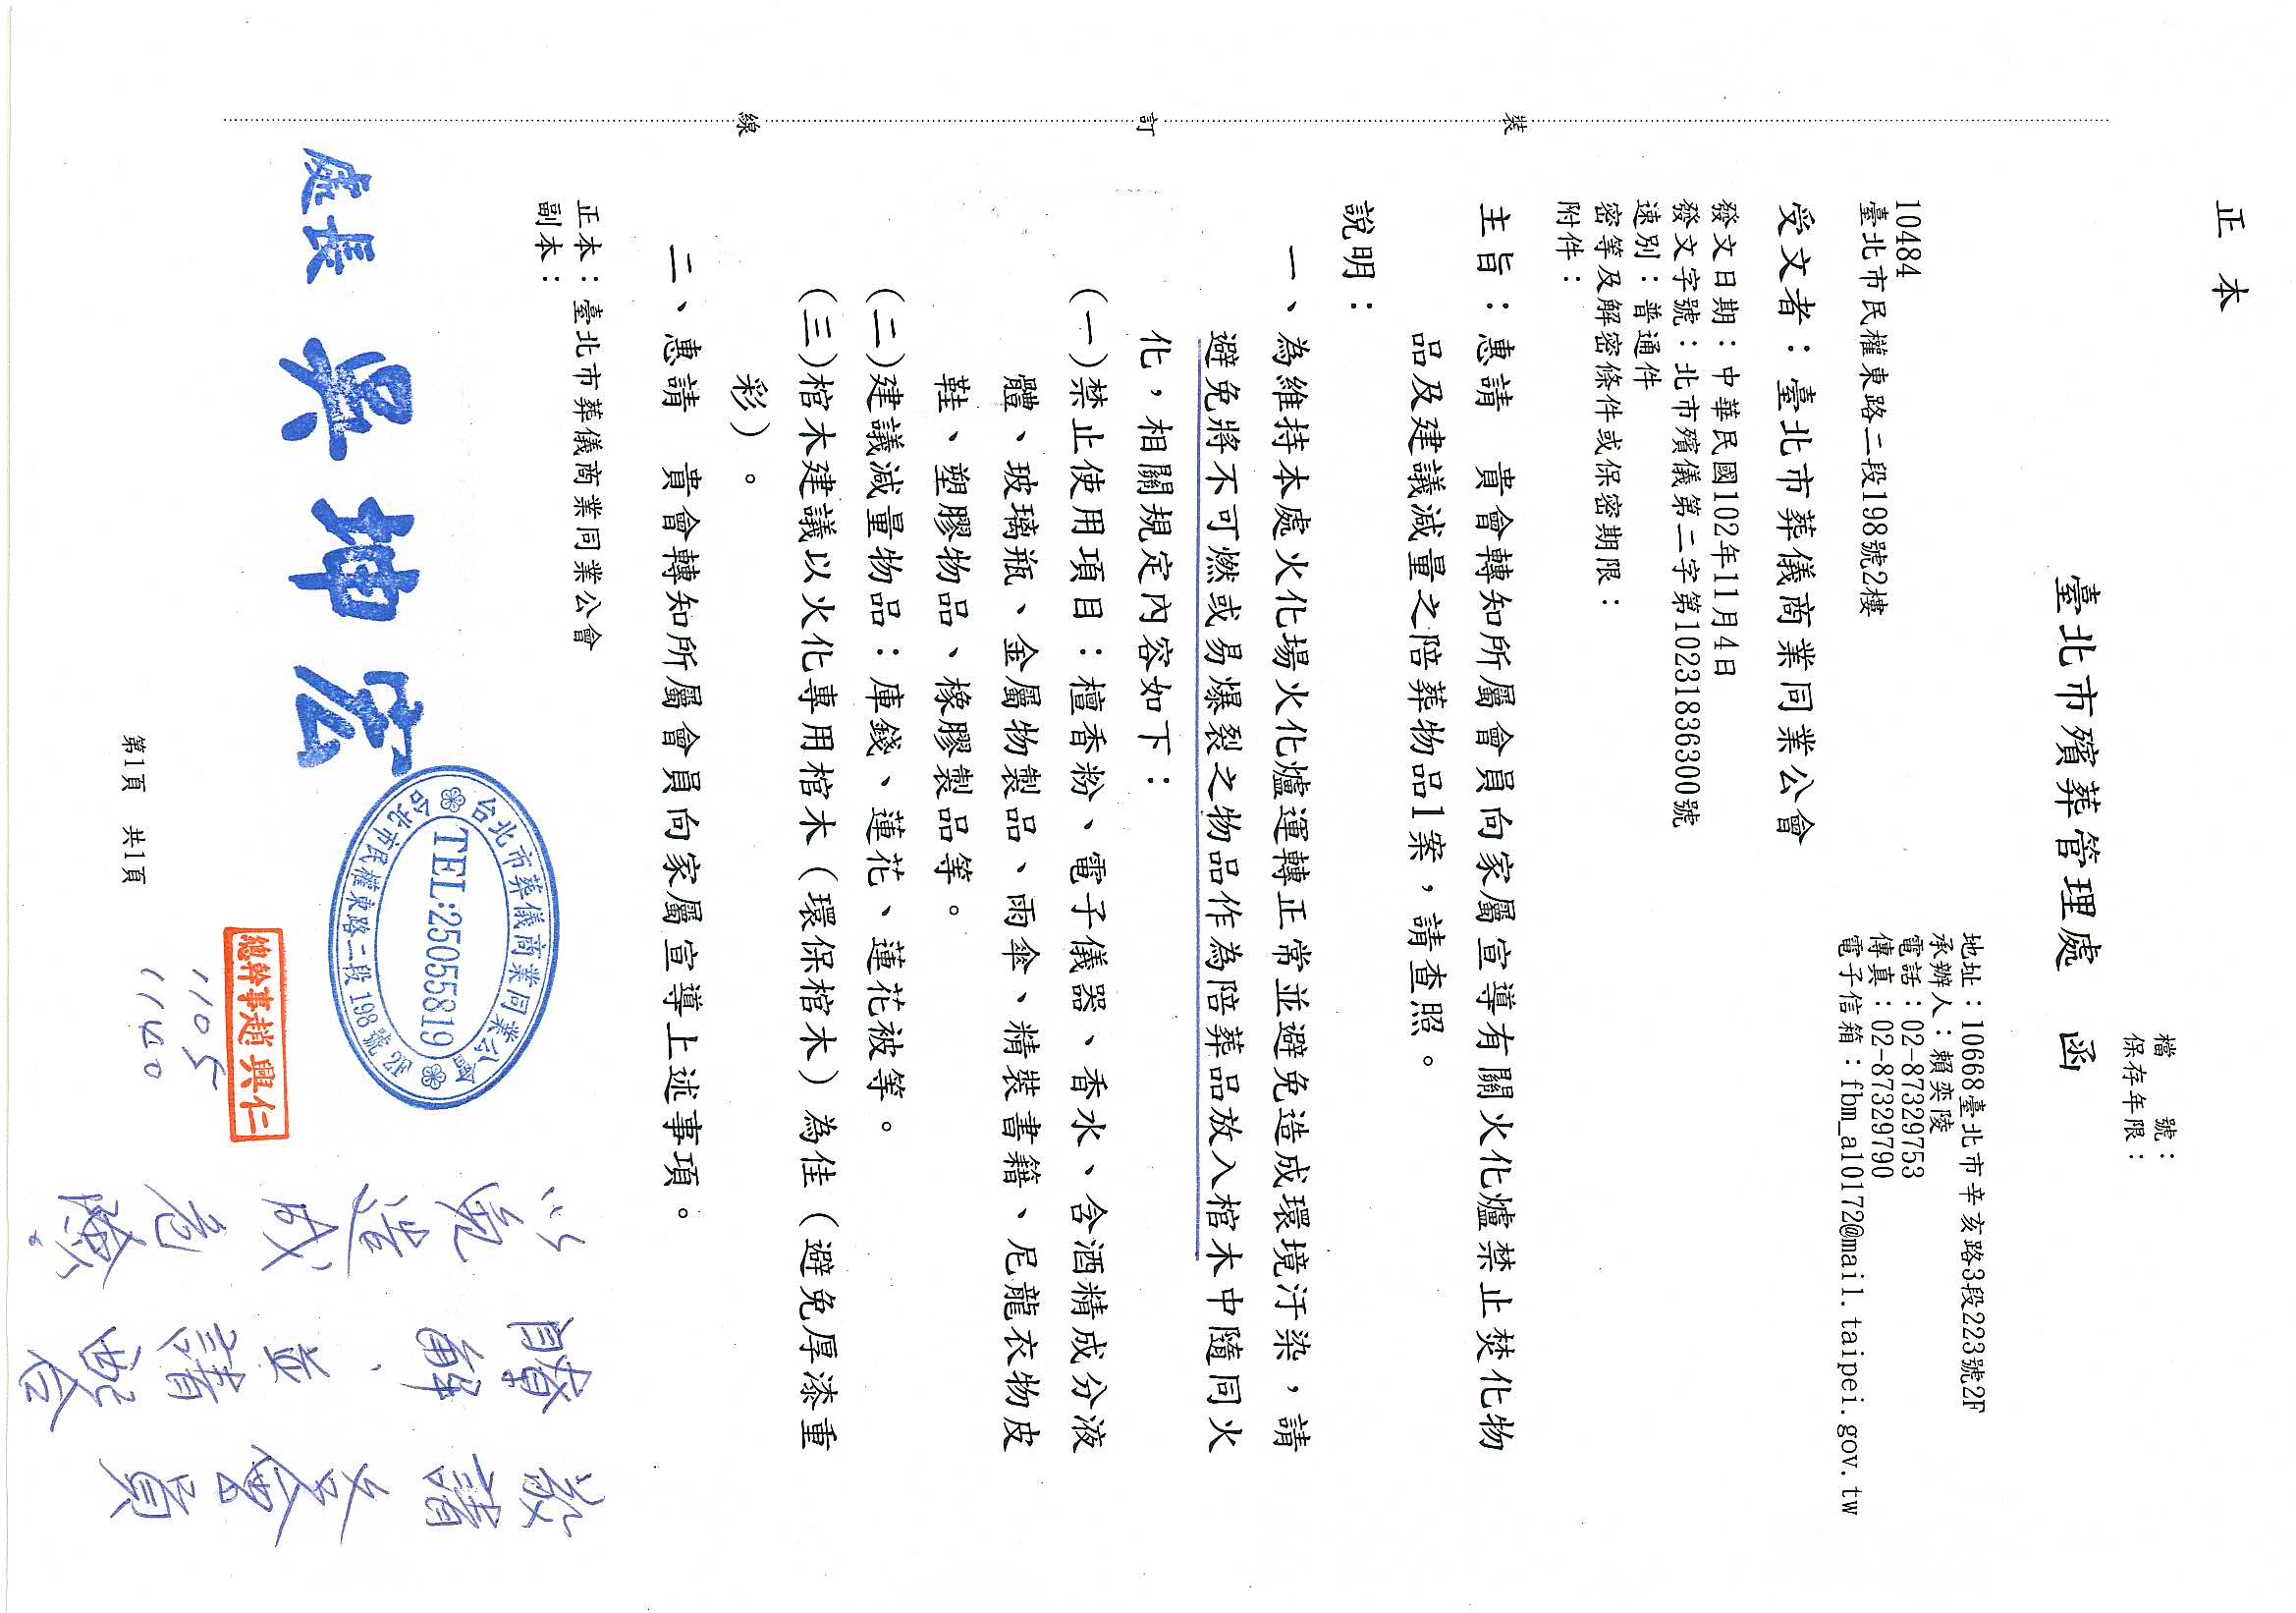 正本
檔　　號：
保存年限：
臺北市殯葬管理處　函
地址：10668臺北市辛亥路3段223號2F
承辦人：賴奕陵
電話：02-87329753
傳真：02-87329790
電子信箱：fbm_a10172@mail.taipei.gov.tw
10484
臺北市民權東路二段198號2樓
受文者：臺北市葬儀商業同業公會
發文日期：中華民國102年11月4日
發文字號：北市殯儀第二字第10231836300號
速別：普通件
密等及解密條件或保密期限：
附件：
主旨：惠請　貴會轉知所屬會員向家屬宣導有關火化爐禁止焚化物
品及建議減量之陪葬物品1案，請查照。
說明：
一、為維持本處火化場火化爐運轉正常並避免造成環境汙染，請
避免將不可燃或易爆裂之物品作為陪葬品放入棺木中隨同火
化，相關規定內容如下：
(一)禁止使用項目：檀香粉、電子儀器、香水、含酒精成分液
體、玻璃瓶、金屬物製品、雨傘、精裝書籍、尼龍衣物皮
鞋、塑膠物品、橡膠製品等。
(二)建議減量物品：庫錢、蓮花、蓮花被等。
(三)棺木建議以火化專用棺木（環保棺木）為佳（避免厚漆重
彩）。
二、惠請　貴會轉知所屬會員向家屬宣導上述事項。
正本：臺北市葬儀商業同業公會
副本：
處長 吳坤宏
台北市葬儀商業同業公會
TEL:25055819
台北市民權東路二段198號2F
總幹事趙興仁
1105
1140
敬請
各會員
瞭解、並
請配合
以免造成
危險。
第1頁　共1頁
裝
訂
線